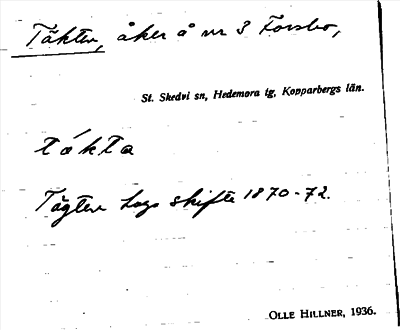 Täkten, åker å nr 3 Forsbo,
St. Skedvi sn, Hedemora tg, Kopparbergs län.
tákta
Tägten Laga skifte 1870-72.
OLLE HILLNER, 1936.